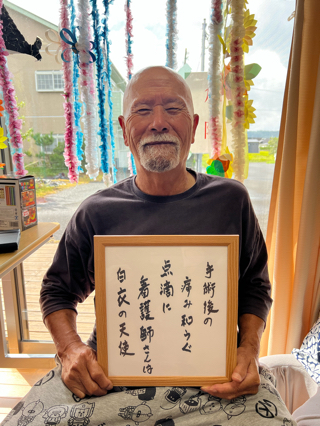 手術後の
痛み和らぐ
点滴に
看護師さんは
白衣の天使